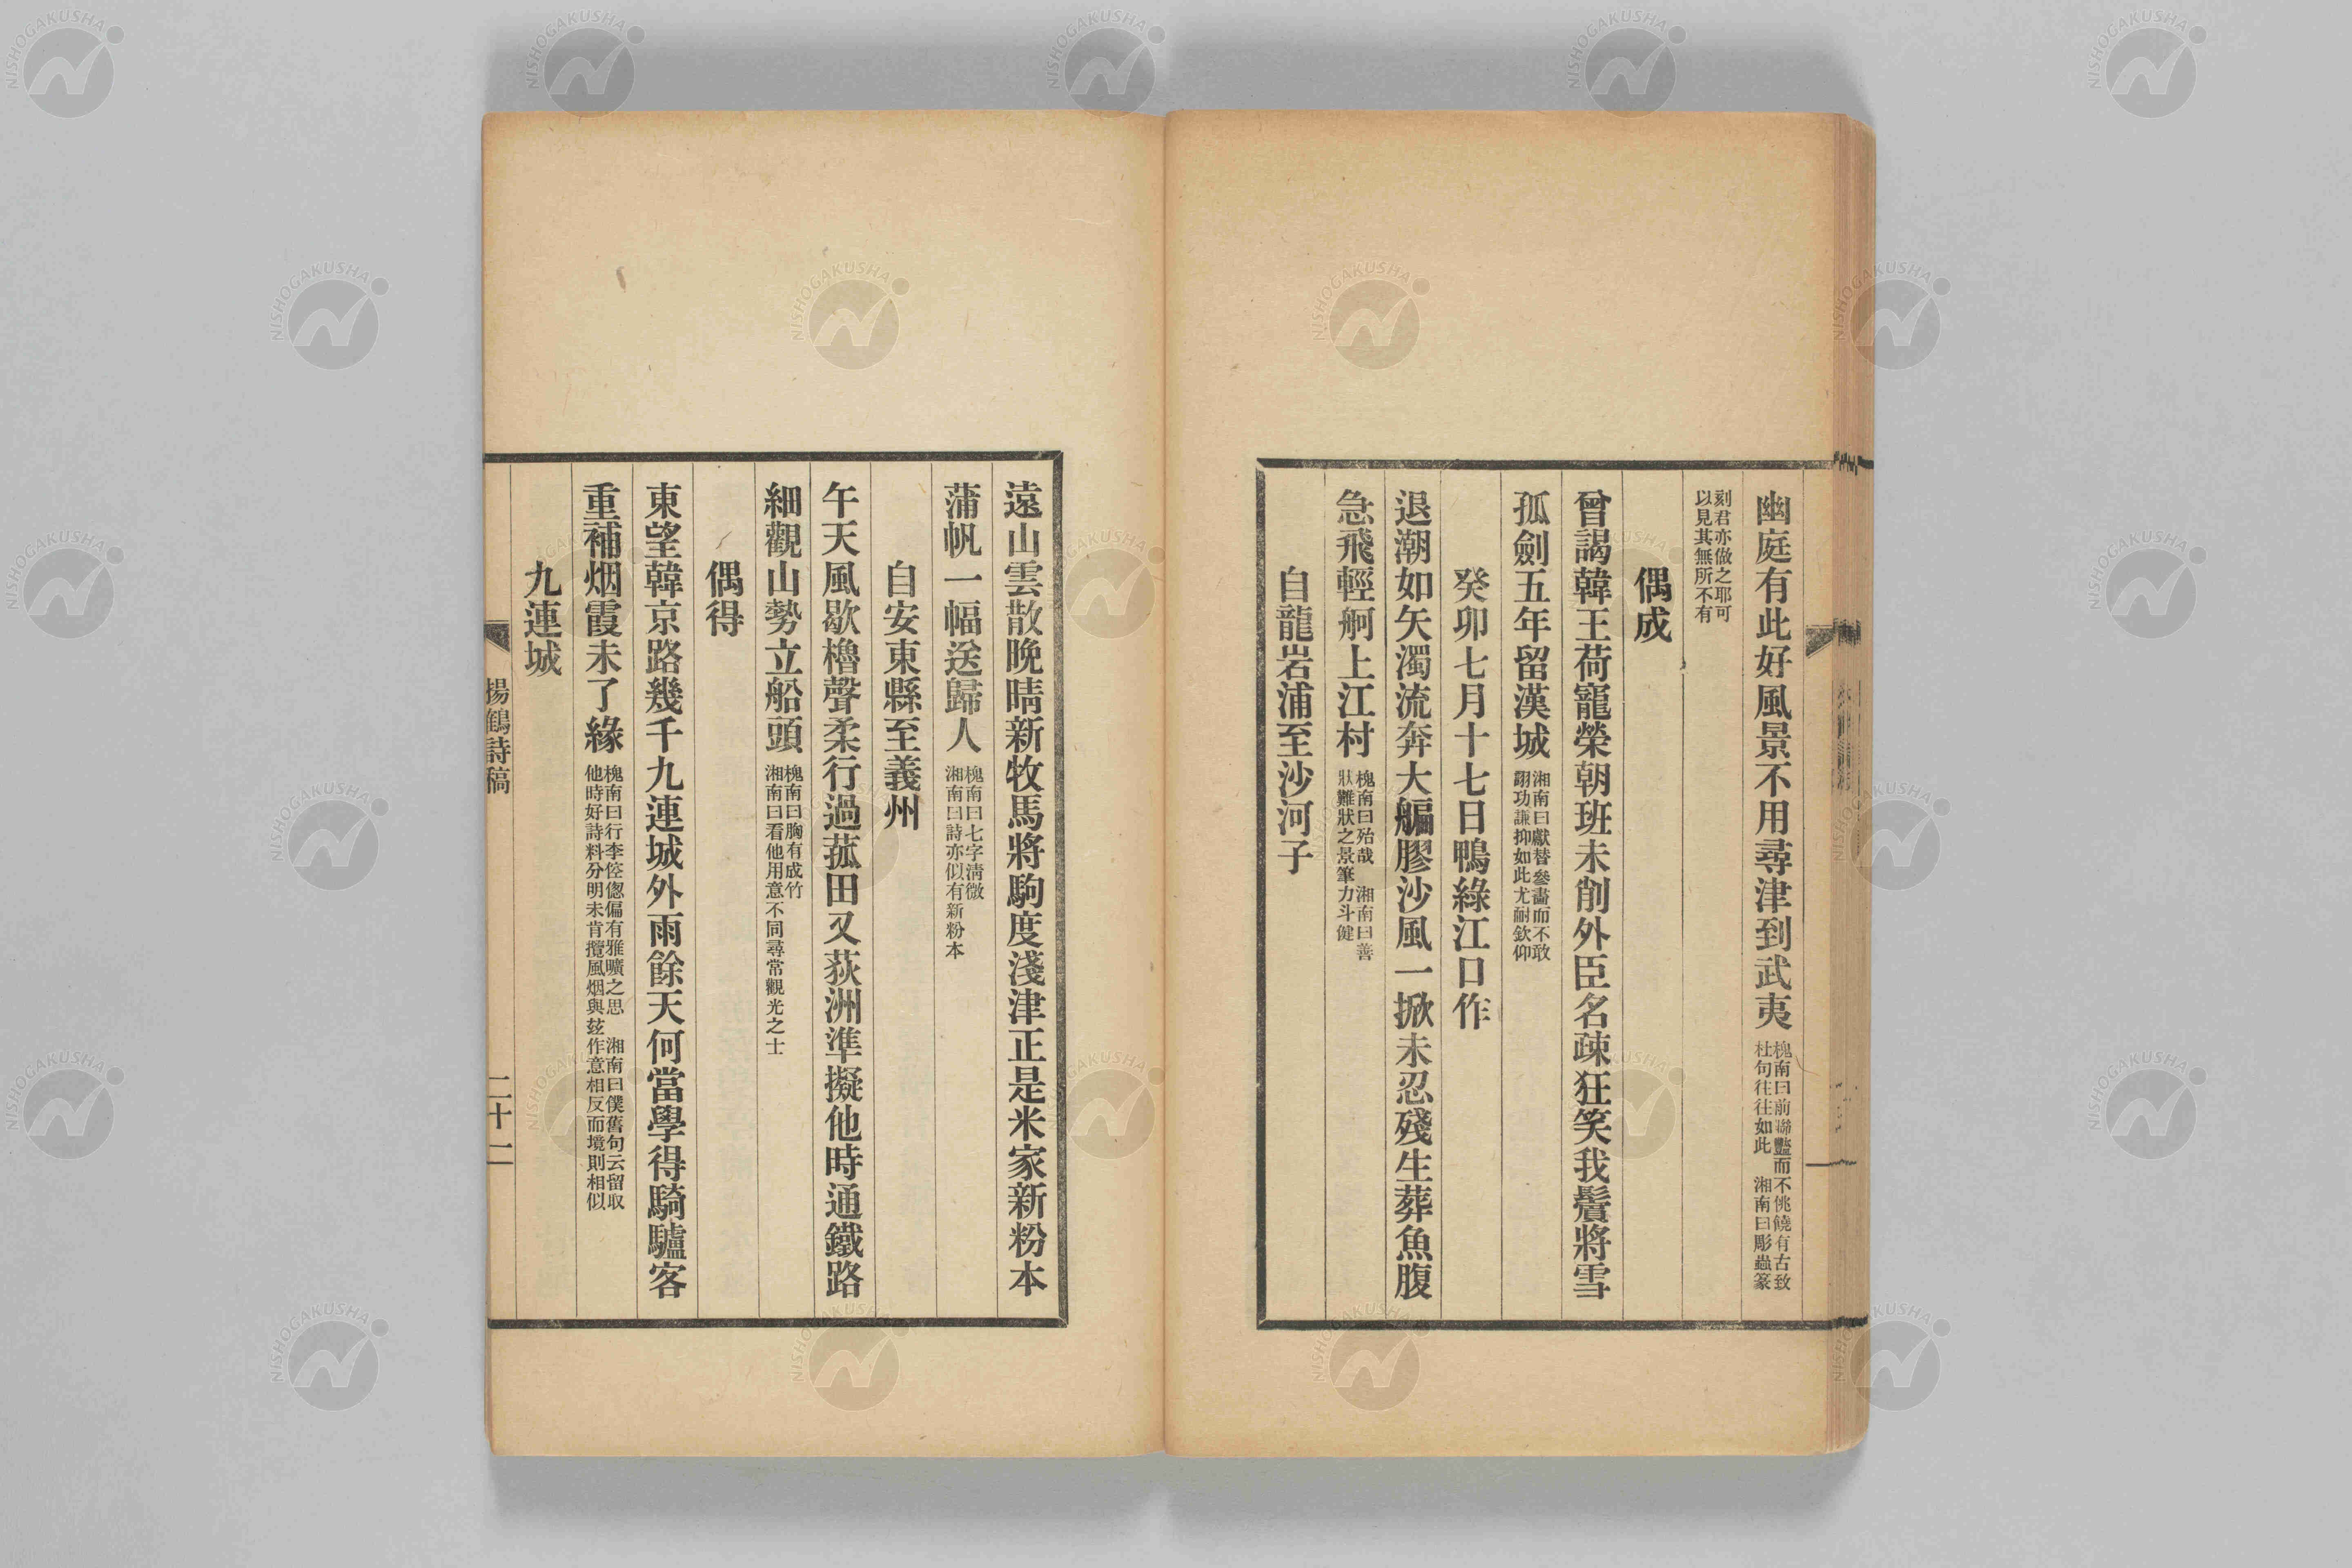 幽庭有此好風景不用尋津到武夷
槐南曰前聯豔而不佻饒有古致
杜句往往如此 湘南曰彫蟲篆
刻君亦倣之耶可
以見其無所不有
偶成
曾謁韓王荷寵榮朝班未削外臣名疎狂笑我鬢將雪
孤劍五年留漢城
湘南曰獻替參畫而不敢
翻功謙抑如此尤耐欽仰
癸卯七月十七日鴨綠江口作
退潮如矢濁流奔大艑膠沙風一掀未忍殘生葬魚腹
急飛輕舸上江村
槐南曰殆哉 湘南曰善
狀難狀之景筆力斗健
自龍岩浦至沙河子
遠山雲散晚晴新牧馬將駒度淺津正是米家新粉本
蒲帆一幅送歸人
槐南曰七字淸微
湘南曰詩亦似有新粉本
自安東縣至義州
午天風歇櫓聲柔行過菰田又荻洲準擬他時通鐵路
細觀山勢立船頭
槐南曰胸有成竹
湘南曰看他用意不同尋常觀光之士
偶得
東望韓京路幾千九連城外雨餘天何當學得騎驢客
重補烟霞未了緣
槐南曰行李倥傯偏有雅曠之思 湘南曰僕舊句云留取
他時好詩料分明未肯攬風烟與玆作意相反而境則相似
九連城
揚鶴詩稿
二十一
NISHOGAKUSHA